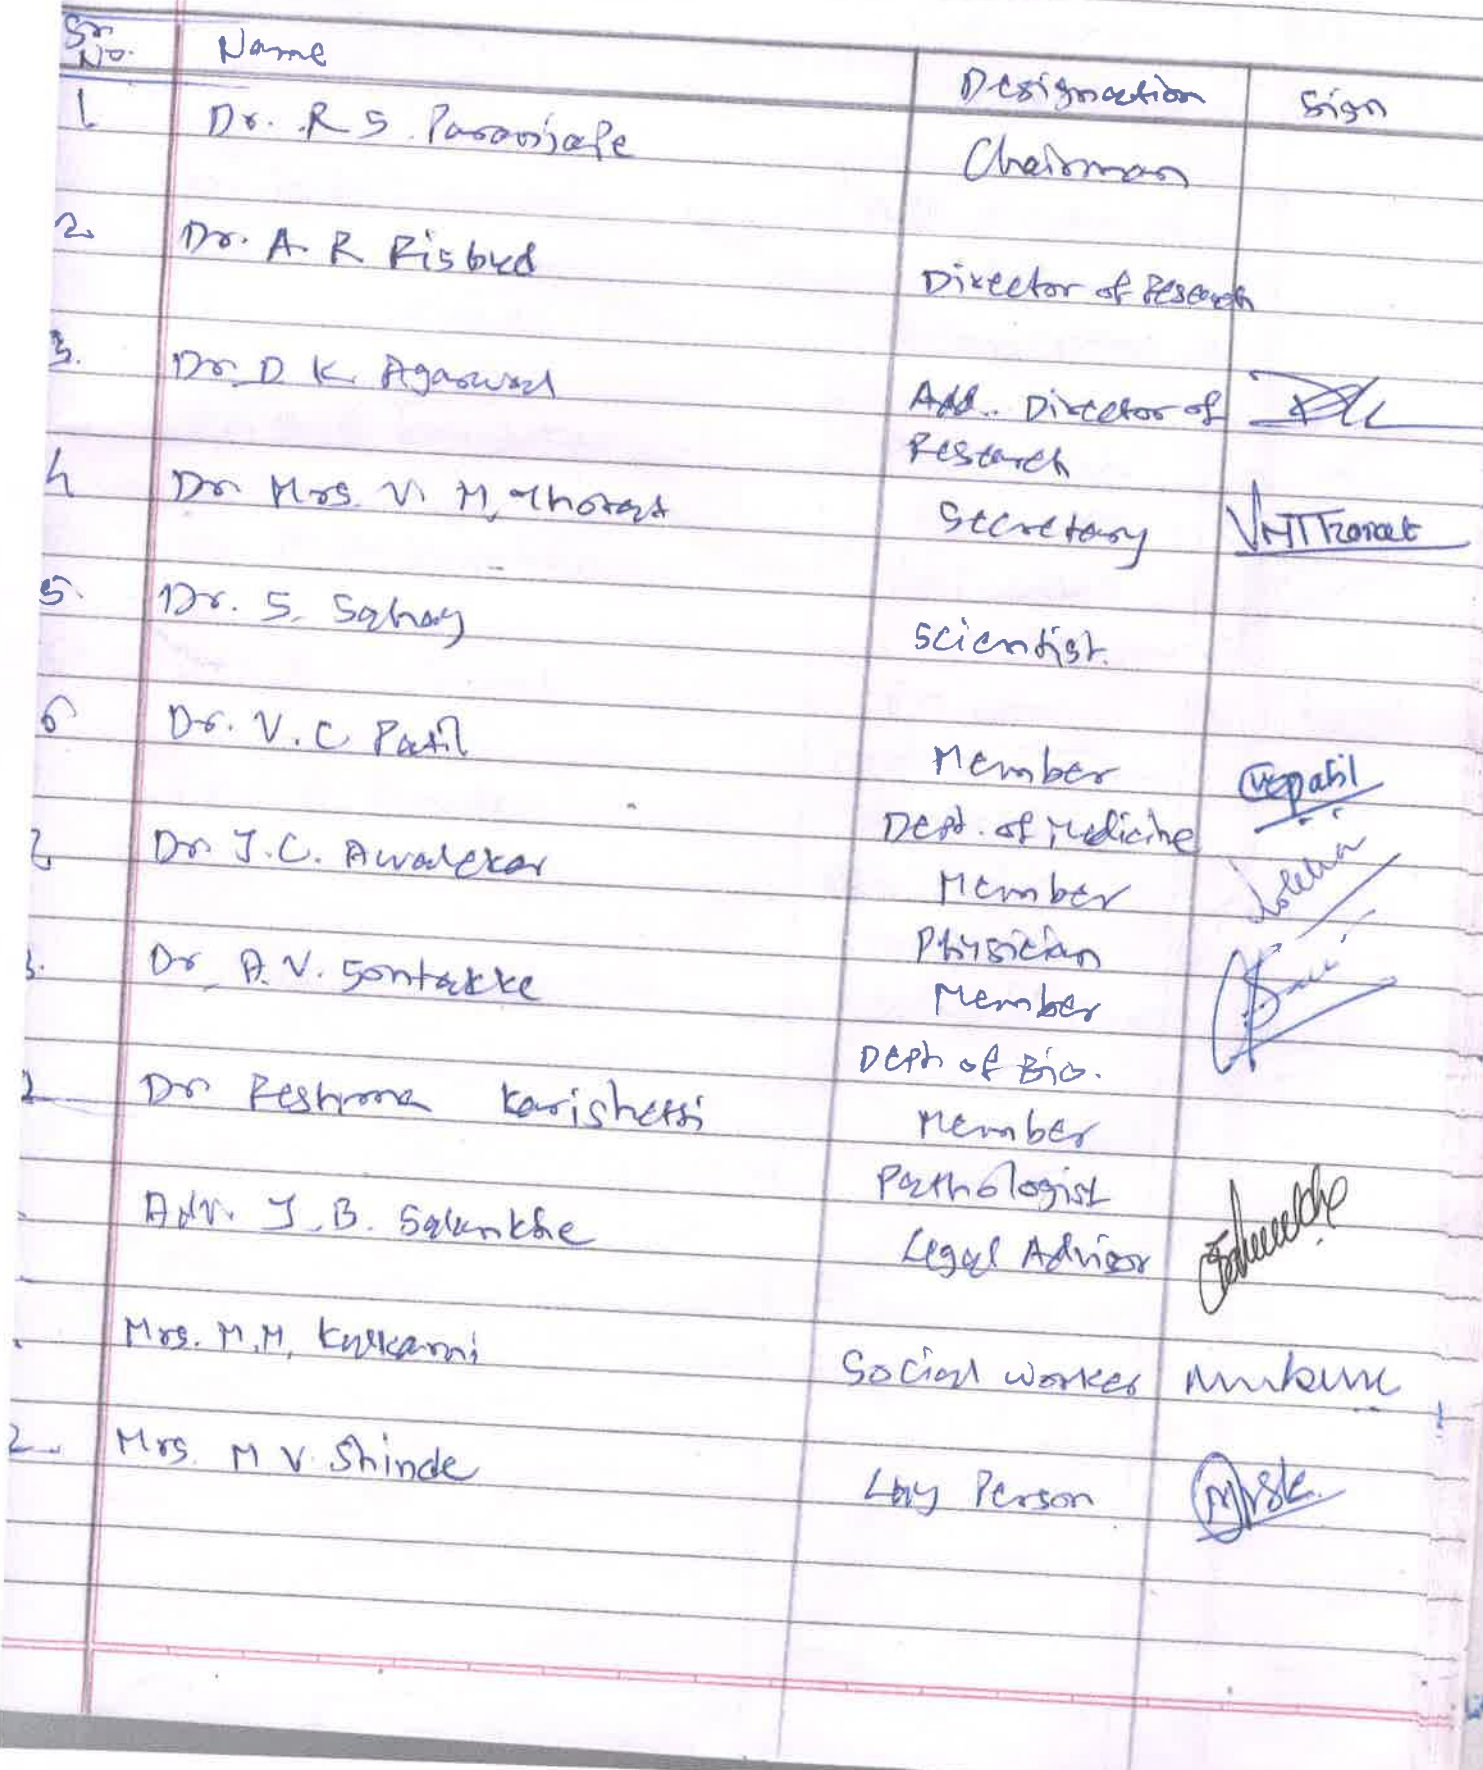 Sr. No. Name Designation Sign
1 Dr. R S. Paranjape Chairman
2. Dr. A. R Risbud Director of Research
3. Dr. D K. Agarwal Add. Director of
Research
4 Dr. Mrs. V. M. Thorat Secretary VMThorat
5. Dr. S. Sahay Scientist.
6 Dr. V. C. Patil Member vcpatil
Dept. of Medicine
Dr. J. C. Awalekar Member
Physician
Dr. A. V. Sontakke Member
Dept of Bio.
Dr. Reshma Karishetti Member
Pathologist
Adv. J. B. Salunkhe Legal Advisor
Mrs. M. M. Kulkarni Social worker
2. Mrs. M V. Shinde Lay Person